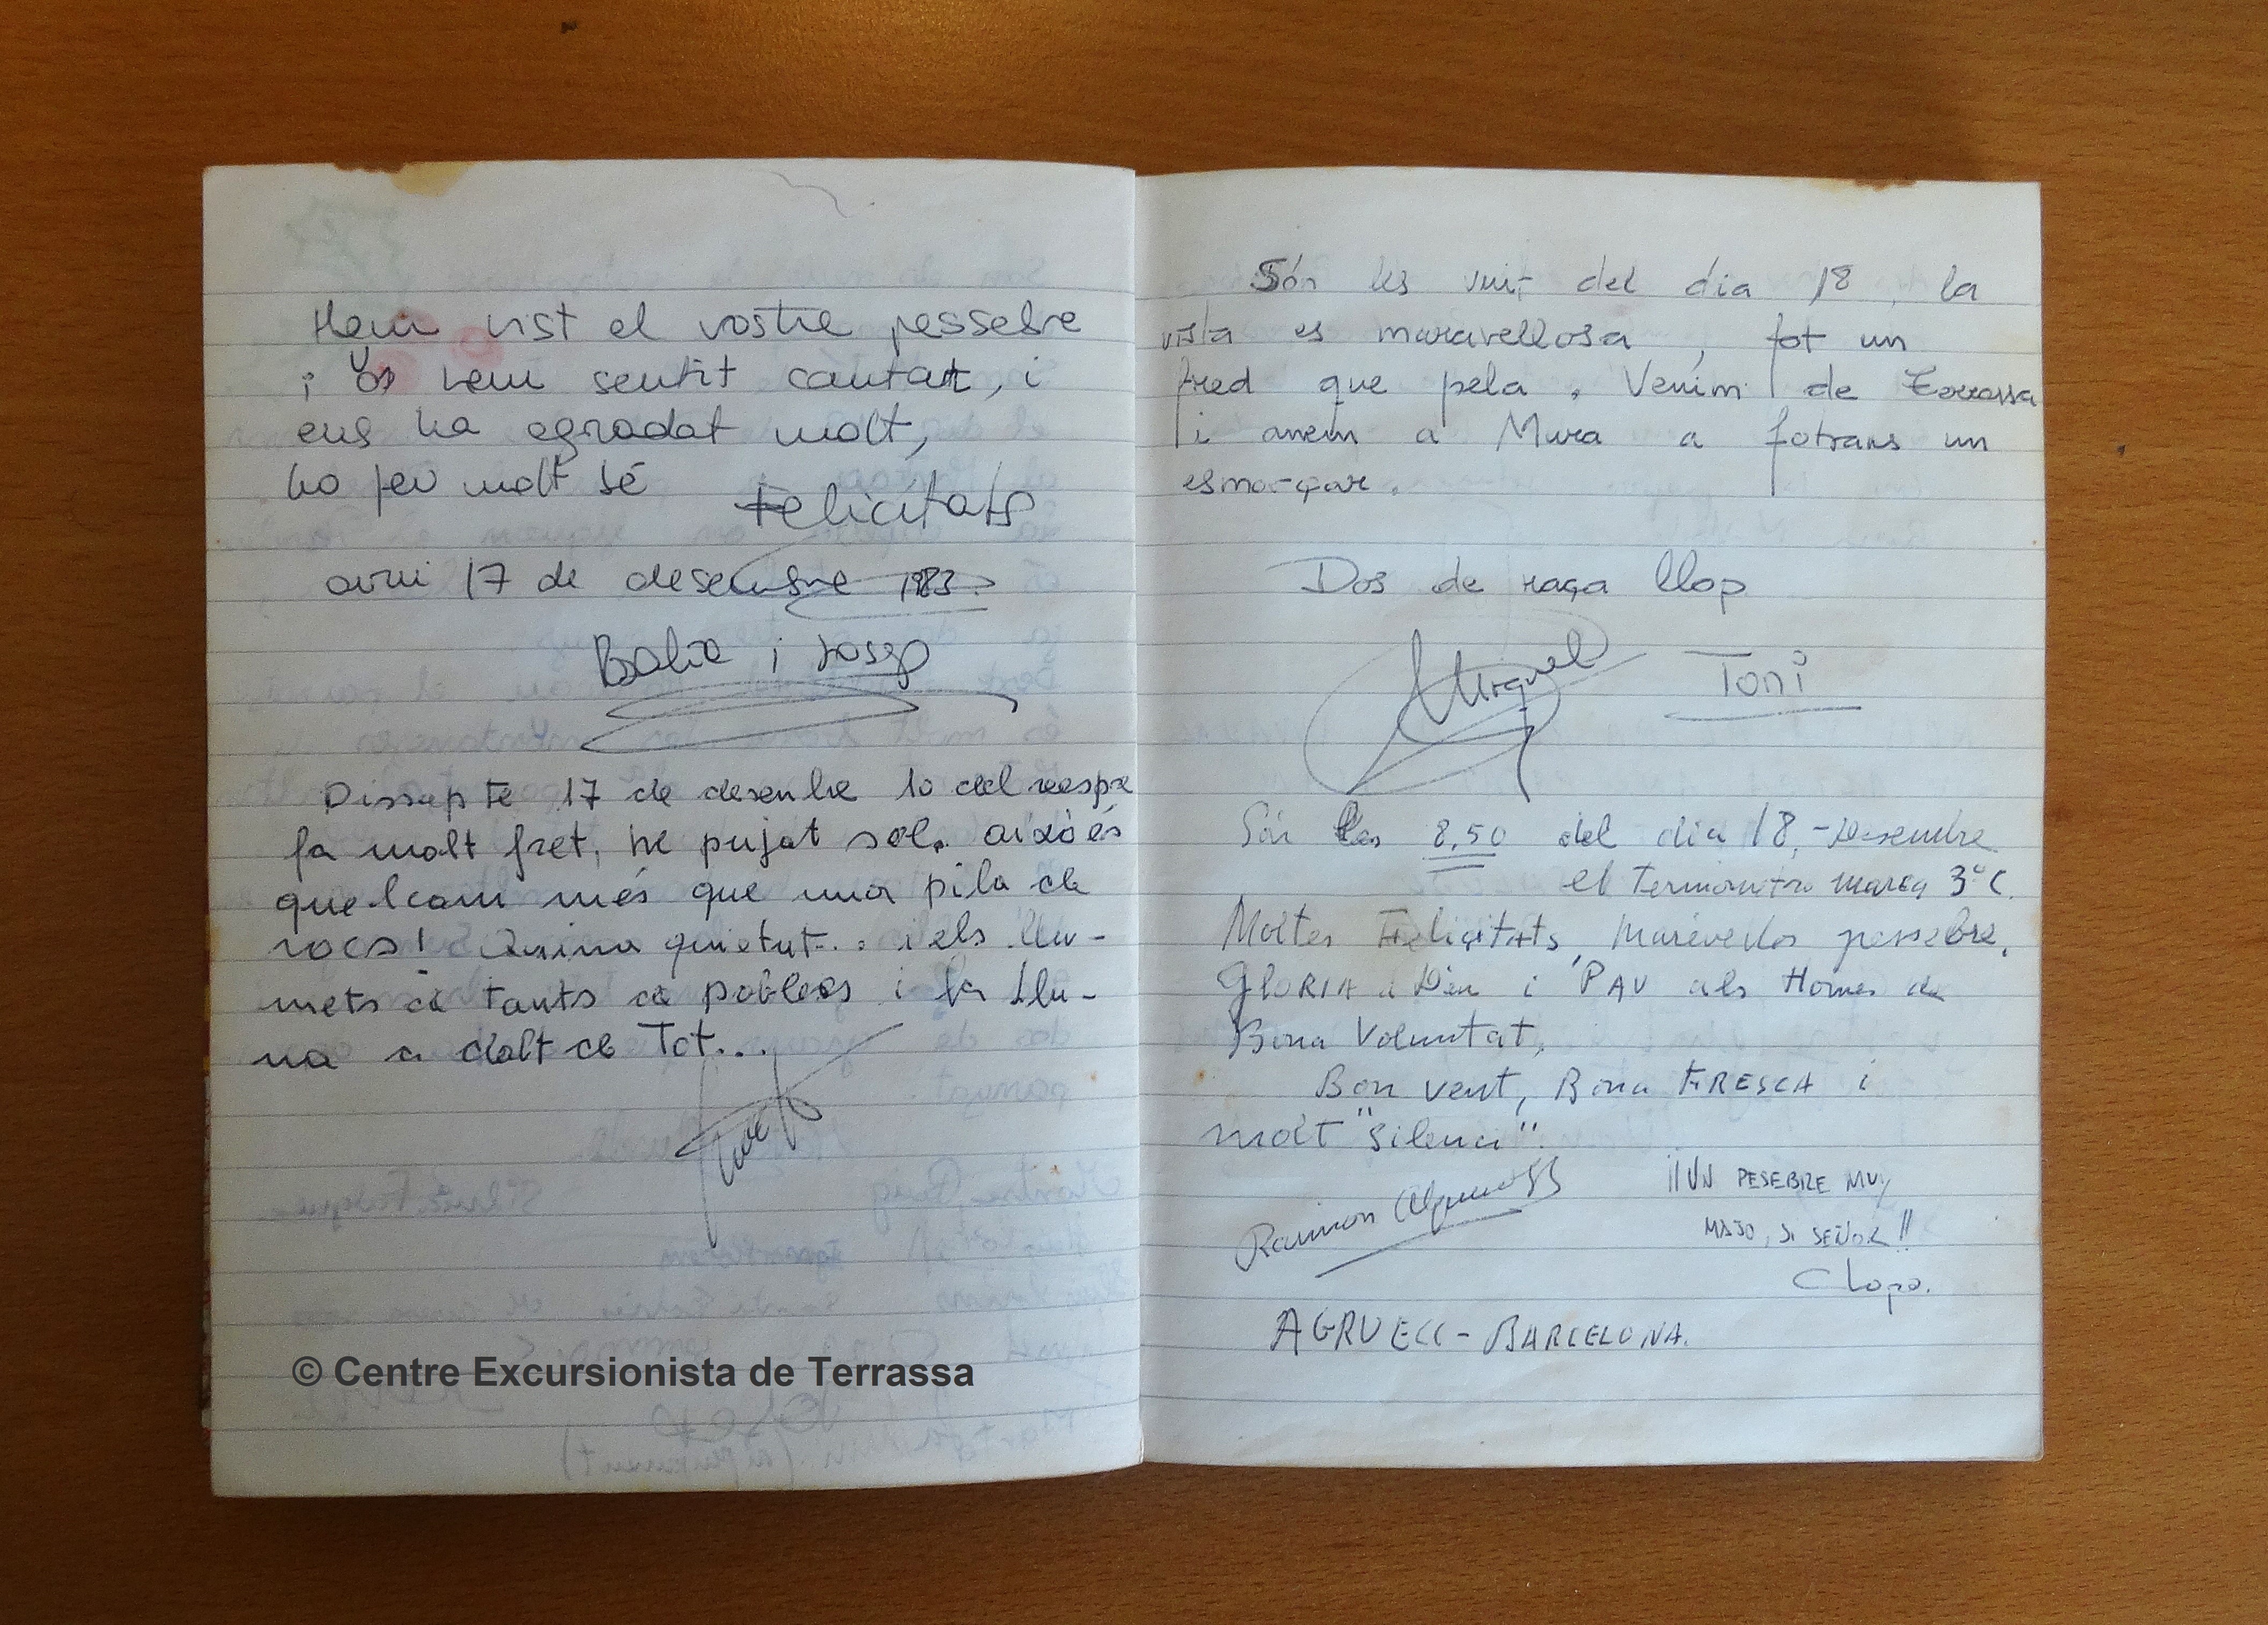 Hem vist el vostre pessebre
i us hem sentit cantant, i
ens ha agradat molt,
ho feu molt bé
Felicitats
avui 17 de desembre 1983.
i Josep
Dissapte 17 de desembre 10 del vespre
fa molt fret, he pujat sol. això és
quelcom més que una pila de
rocs! Quina quietut... i els llu-
mets de tants de pobles i la Llu-
na a dalt de Tot...
© Centre Excursionista de Terrassa
Són les vuit del dia 18, la
vista es maravellosa, fot un
fred que pela. Venim de Terrassa
i anem a Mura a fotrans un
esmorçar.
Dos de raça llop
Miquel Toni
Són les 8,50 del dia 18,-Desembre
el termometre marca 3°C.
Moltes Felicitats, marevellos pessebre.
GLORIA a Déu i PAU als Homes de
Bona Voluntat,
Bon vent, Bona FRESCA i
molt "silenci".
Ramon
¡¡UN PESEBRE MUY
MAJO, SI SEÑOR!!
Clopo.
AGRUECC - BARCELONA.